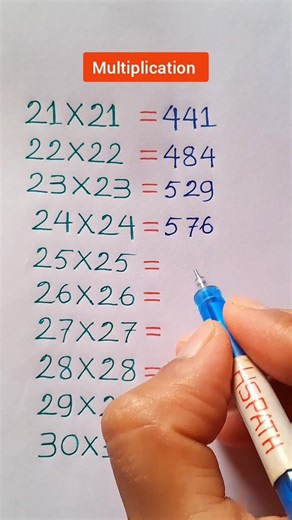 Multiplication
21X21 = 441
22X22 = 484
23X23 = 529
24X24 = 576
25X25 =
26X26 =
27X27 =
28X28 =
29X
30X
HSPATH